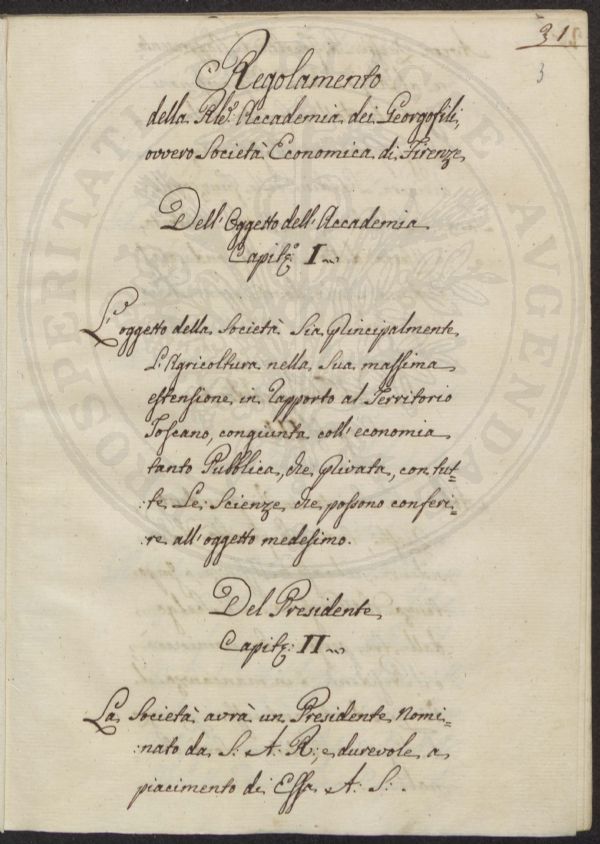 31
3
Regolamento
della Rle. Accademia dei Georgofili,
ovvero Società Economica di Firenze
Dell'Oggetto dell'Accademia
Capitº. I
L'oggetto della Società sia principalmente
L'Agricoltura nella sua massima
estensione in rapporto al Territorio
Toscano, congiunta coll'economia
tanto Pubblica, che privata, con tut=
:te Le Scienze che possono conferi=
:re all'oggetto medesimo.
Del Presidente
Capitº: II
La Società avrà un Presidente Nomi=
:nato da S: A: R:, e durevole a
piacimento di Essa A: S: .
PROSPERITATI AUGENDAE